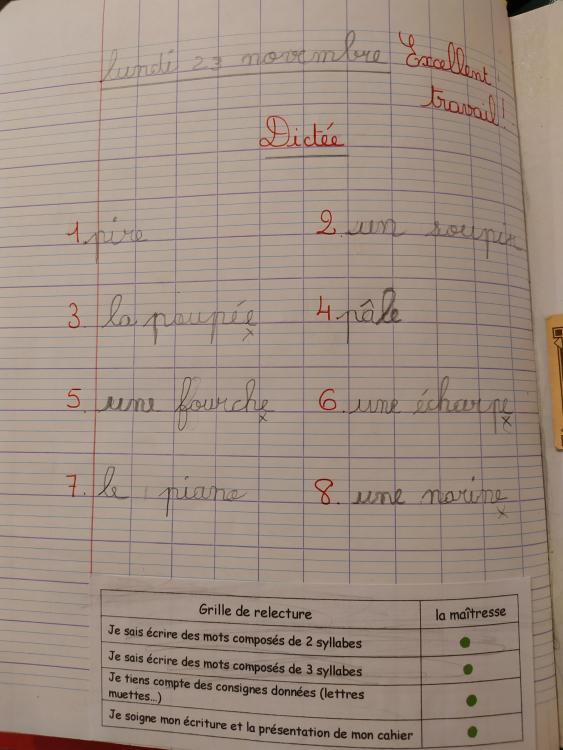 lundi 23 novembre Excellent
travail !
Dictée
1. pire 2. un soupir
3. la poupée 4. pâle
5. une fourche 6. une écharpe
7. le piano 8. une narine
Grille de relecture la maîtresse
Je sais écrire des mots composés de 2 syllabes
Je sais écrire des mots composés de 3 syllabes
Je tiens compte des consignes données (lettres
muettes...)
Je soigne mon écriture et la présentation de mon cahier